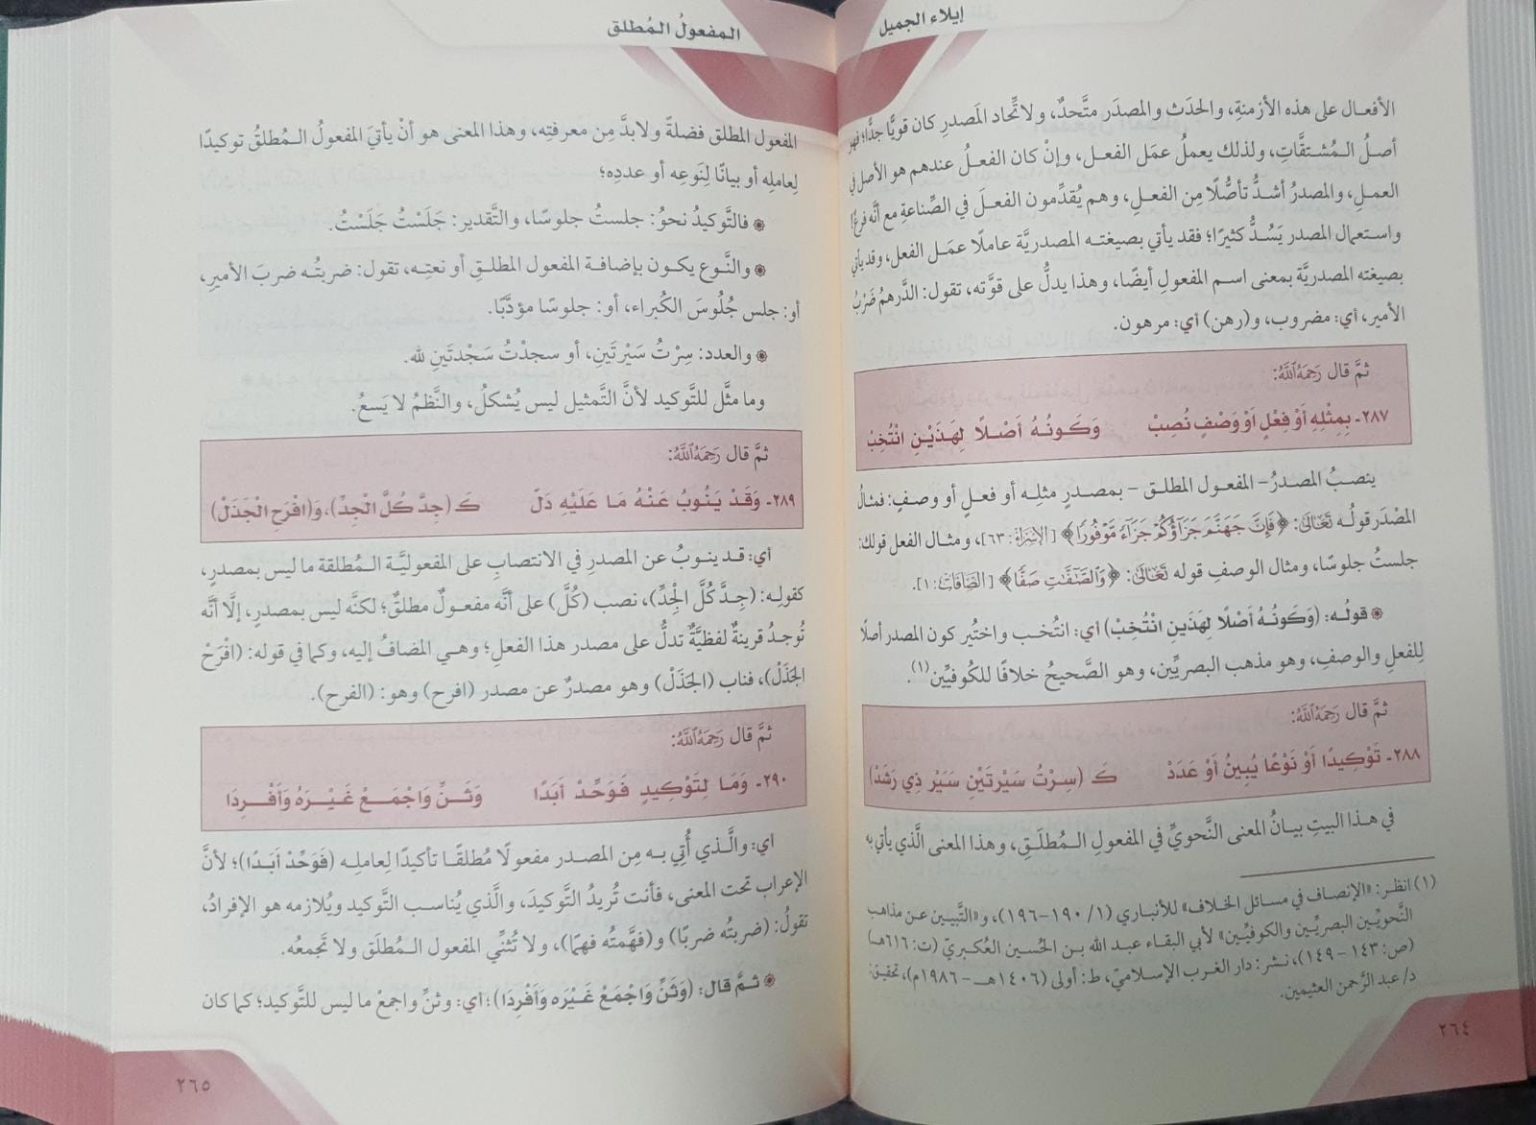 إيلاء الجميل
الأفعال على هذه الأزمنةِ، والحدَث والمصدَر متَّحدٌ، ولاتِّحاد المَصدرِ كان قويًّا جدًّا؛ فهو
أصلُ الـمُشـتقَّاتِ، ولذلك يعملُ عمَل الفعـل، وإنْ كان الفعـلُ عندهم هو الأصل في
العمـلِ، والمصدرُ أشـدُّ تأصُّلًا مِن الفعـلِ، وهم يُقدِّمون الفعلَ في الصِّناعةِ مع أنَّه فرعٌ!
واستعمال المصدر يَسُـدُّ كثيرًا؛ فقد يأتي بصيغتـه المصدريَّة عاملًا عمَـل الفعل، وقد يأتي
بصيغته المصدريَّة بمعنى اسـم المفعولِ أيضًا، وهذا يدلُّ على قوَّته، تقول: الدَّرهمُ ضَرْبُ
الأمير، أي: مضروب، و(رهن) أي: مرهون.
ثمَّ قال رَحِمَهُ ٱللَّهُ:
٢٨٧- بِمِثْلِهِ أوْ فِعْلٍ اَوْ وَصْفٍ نُصِبْ وَكَـونُـهُ أصْـلًا لِهَذَيْـنِ انْتُخِبْ
ينصبُ المصدرُ- المفعـول المطلـق - بمصـدرٍ مثلِـه أو فعـلٍ أو وصـفٍ: فمثالُ
المصْدَر قولُـه تَعَالَىٰ: ﴿فَإِنَّ جَهَنَّمَ جَزَآؤُكُمْ جَزَآءً مَّوْفُورًا﴾ [الإِسْرَاءُ: ٦٣]، ومثـال الفعل قولك:
جلستُ جلوسًا، ومثال الوصفِ قوله تَعَالَىٰ: ﴿وَٱلصَّٰٓفَّٰتِ صَفًّا﴾ [الصَّافَّات: ١].
قولُـه: (وَكَونُـهُ أصْلًا لِهَذَينِ انْتُخِبْ) أي: انتُخـب واختُير كون المصدر أصلًا
لِلفعلِ والوصفِ، وهو مذهب البصريِّين، وهو الصَّحيحُ خلافًا للكُوفيِّين(١).
ثمَّ قال رَحِمَهُ ٱللَّهُ:
٢٨٨- تَوْكِيدًا أوْ نَوْعًا يُبِينُ أوْ عَدَدْ كَـ (سِرْتُ سَيْرَتَيْنِ سَيْرَ ذِي رَشَدْ)
في هـذا البيتِ بيـانُ المعنى النَّحويِّ في المفعولِ الـمُطلَـقِ، وهذا المعنى الَّذي يأتي به
(١) انظـر: «الإنصاف في مسائل الخلاف» للأنباري (١/ ١٩٠-١٩٦)، و«التَّبيين عـن مذاهب
النَّحويِّـين البصريِّـين والكوفيِّـين» لأبي البقـاء عبـد الله بـن الحُسـين العُكبريّ (ت: ٦١٦هـ)
(ص: ١٤٣ - ١٤٩)، نشر: دار الغـرب الإسـلاميّ، ط: أولى (١٤٠٦هـ - ١٩٨٦م)، تحقيق:
د/ عبد الرَّحمن العثيمين.
٢٦٤
المفعولُ المُطلق
المفعول المطلق فضلةً ولابدَّ مِن معرفتِه، وهذا المعنى هو أنْ يأتيَ المفعولُ الـمُطلقُ توكيدًا
لِعاملِه أو بيانًا لِنَوعِه أو عددِه؛
فالتَّوكيدُ نحوُ: جلستُ جلوسًا، والتَّقدير: جَلَسْتُ جَلَسْتُ.
والنَّـوع يكـون بإضافـة المفعول المطلـقِ أو نعتِـه، تقول: ضربتُـه ضربَ الأميرِ،
أو: جلس جُلُوسَ الكُبراء، أو: جلوسًا مؤدَّبًا.
والعدد: سِرْتُ سَيْرتَينِ، أو سجدْتُ سَجْدتَينِ لله.
وما مثَّل للتَّوكيد لأنَّ التَّمثيل ليس يُشكلُ، والنَّظمُ لا يَسعُ.
ثمَّ قال رَحِمَهُ ٱللَّهُ:
٢٨٩- وَقَدْ يَنُوبُ عَنْهُ مَا عَلَيْهِ دَلّ كَـ (جِدَّ كُلَّ الْجِدِّ)، وَ(افْرَحِ الْجَذَلْ)
أي: قـد ينـوبُ عن المصدرِ في الانتصابِ على المفعوليَّـة الـمُطلقة ما ليس بمصدرٍ،
كقولِـه: (جِـدَّ كُلَّ الْجِدِّ)، نصب (كُلَّ) على أنَّه مفعـولٌ مطلقٌ؛ لكنَّه ليس بمصدرٍ، إلَّا أنَّه
تُوجـدُ قرينةٌ لفظيَّةٌ تدلُّ على مصدر هذا الفعلِ؛ وهـي المضافُ إليه، وكما في قوله: (افْرَحْ
الْجَذَلْ)، فناب (الْجَذَلْ) وهو مصدرٌ عن مصدر (افرح) وهو: (الفرح).
ثمَّ قال رَحِمَهُ ٱللَّهُ:
٢٩٠- وَمَا لِتَوْكِيدٍ فَوَحِّدْ أبَدًا وَثَـنِّ وَاجْمَـعْ غَـيْـرَهُ وَأفْـرِدَا
أي: والَّـذي أُتِي بـه مِن المصـدر مفعولًا مُطلقًـا تأكيدًا لِعاملِـه (فَوَحِّدْ أبَـدًا)؛ لأنَّ
الإعراب تحت المعنى، فأنت تُريدُ التَّوكيدَ، والَّذي يُناسب التَّوكيد ويُلازمه هو الإفرادُ،
تقولُ: (ضربتُه ضربًا) و(فهَّمتُه فهمًا)، ولا تُثنِّي المفعول الـمُطلَق ولا تَجمعُه.
ثـمَّ قال: (وَثَنِّ وَاجْمَعْ غَـيْرَه وَأفْرِدَا)؛ أي: وثنِّ واجمعْ ما ليس للتَّوكيد؛ كما كان
٢٦٥